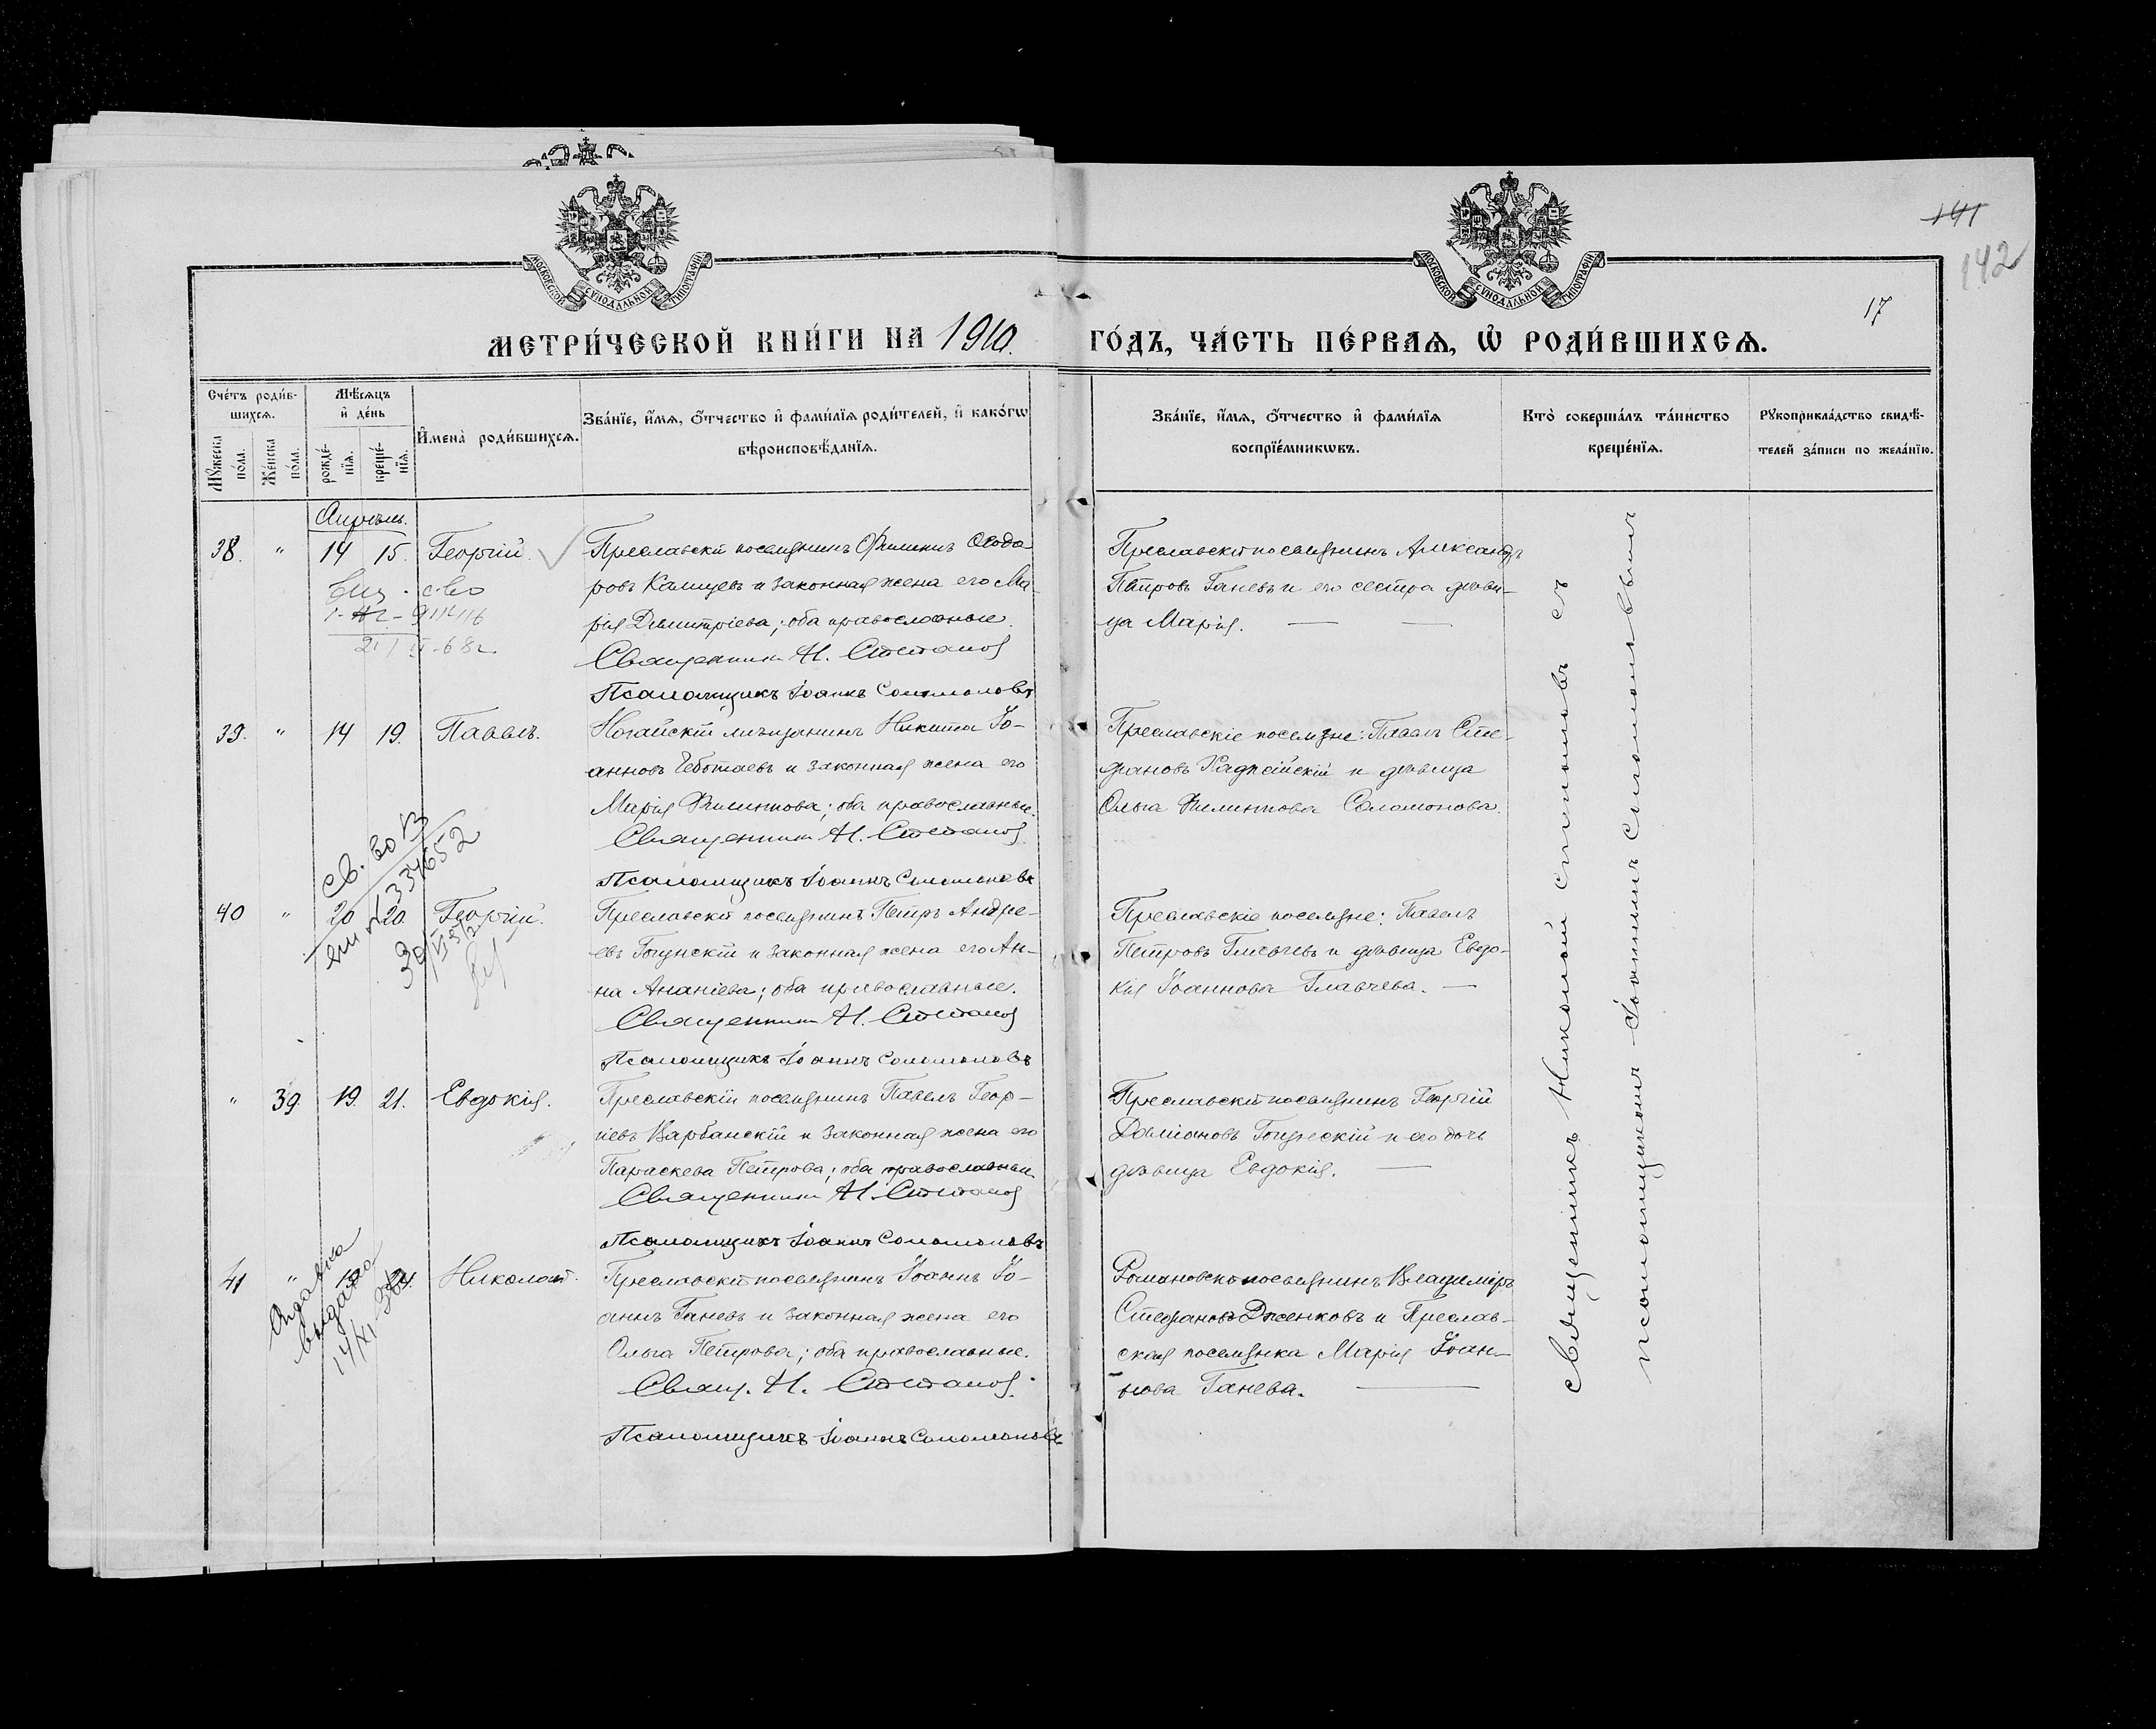 141
142
17
МЕТРИ́ЧЕСКОЙ КНИ́ГИ НА 1910. ГО́ДЪ, ЧА́СТЬ ПЕ́РВАЯ, Ѽ РОДИ́ВШИХСЯ.
Сче́тъ роди́в-
шихся.
Мꙋ́жеска по́ла.
Же́нска по́ла.
Мѣ́сяцъ
и҆ де́нь
рожде́-
нїя.
креще́-
нїя.
И҆мена̀ роди́вшихся.
Зва́нїе, и҆́мя, ѻ҆́тчество и҆ фами́лїя роди́телей, и҆ како́гѡ
вѣроисповѣ́данїя.
Зва́нїе, и҆́мя, ѻ҆́тчество и҆ фами́лїя
воспрїе́мникѡвъ.
Кто̀ соверша́лъ та́инство
креще́нїя.
Рꙋкоприкла́дство свидѣ́-
телей за́писи по жела́нїю.
Апрѣль.
38. " 14 15. Георгій.
Преславскій поселянинъ Филиппъ Ѳеодо-
ровъ Калчевъ и законная жена его Ма-
рія Димитріева; оба православные.
Священникъ Н. Стефановъ
Псаломщикъ Іоаннъ Соломоновъ
Преславскій поселянинъ Александръ
Петровъ Ганевъ и его сестра дѣви-
ца Марія.
39. " 14 19. Павелъ.
Ногайскій мѣщанинъ Никита Іо-
анновъ Чеботаевъ и законная жена его
Марія Филиппова; оба православные.
Священникъ Н. Стефановъ
Псаломщикъ Іоаннъ Соломоновъ
Преславскіе поселяне: Павелъ Сте-
фановъ Хаджейскій и дѣвица
Ольга Филиппова Соломонова.
40 " 20 20. Георгій.
Преславскій поселянинъ Петръ Андре-
евъ Гоцунскій и законная жена его Ан-
на Ананіева; оба православные.
Священникъ Н. Стефановъ
Псаломщикъ Іоаннъ Соломоновъ
Преславскіе поселяне: Павелъ
Петровъ и дѣвица Евдо-
кія Іоаннова Главчева.
" 39. 19. 21. Евдокія.
Преславскій поселянинъ Павелъ Геор-
гіевъ Варбанскій и законная жена его
Параскева Петрова; оба православные
Священникъ Н. Стефановъ
Псаломщикъ Іоаннъ Соломоновъ
Преславскій поселянинъ Георгій
Даміановъ и его дочь
дѣвица Евдокія.
41 " Николай.
Преславскій поселянинъ Іоаннъ Іо-
аннъ Ганевъ и законная жена его
Ольга Петрова; оба православные.
Свящ. Н. Стефановъ.
Псаломщикъ Іоаннъ Соломоновъ
Романовскій поселянинъ Владиміръ
Стефановъ Дженковъ и Преслав-
ская поселянка Марія Іоан-
нова Ганева.
Священникъ Николай Стефановъ съ
псаломщикомъ Іоанномъ Соломоновымъ